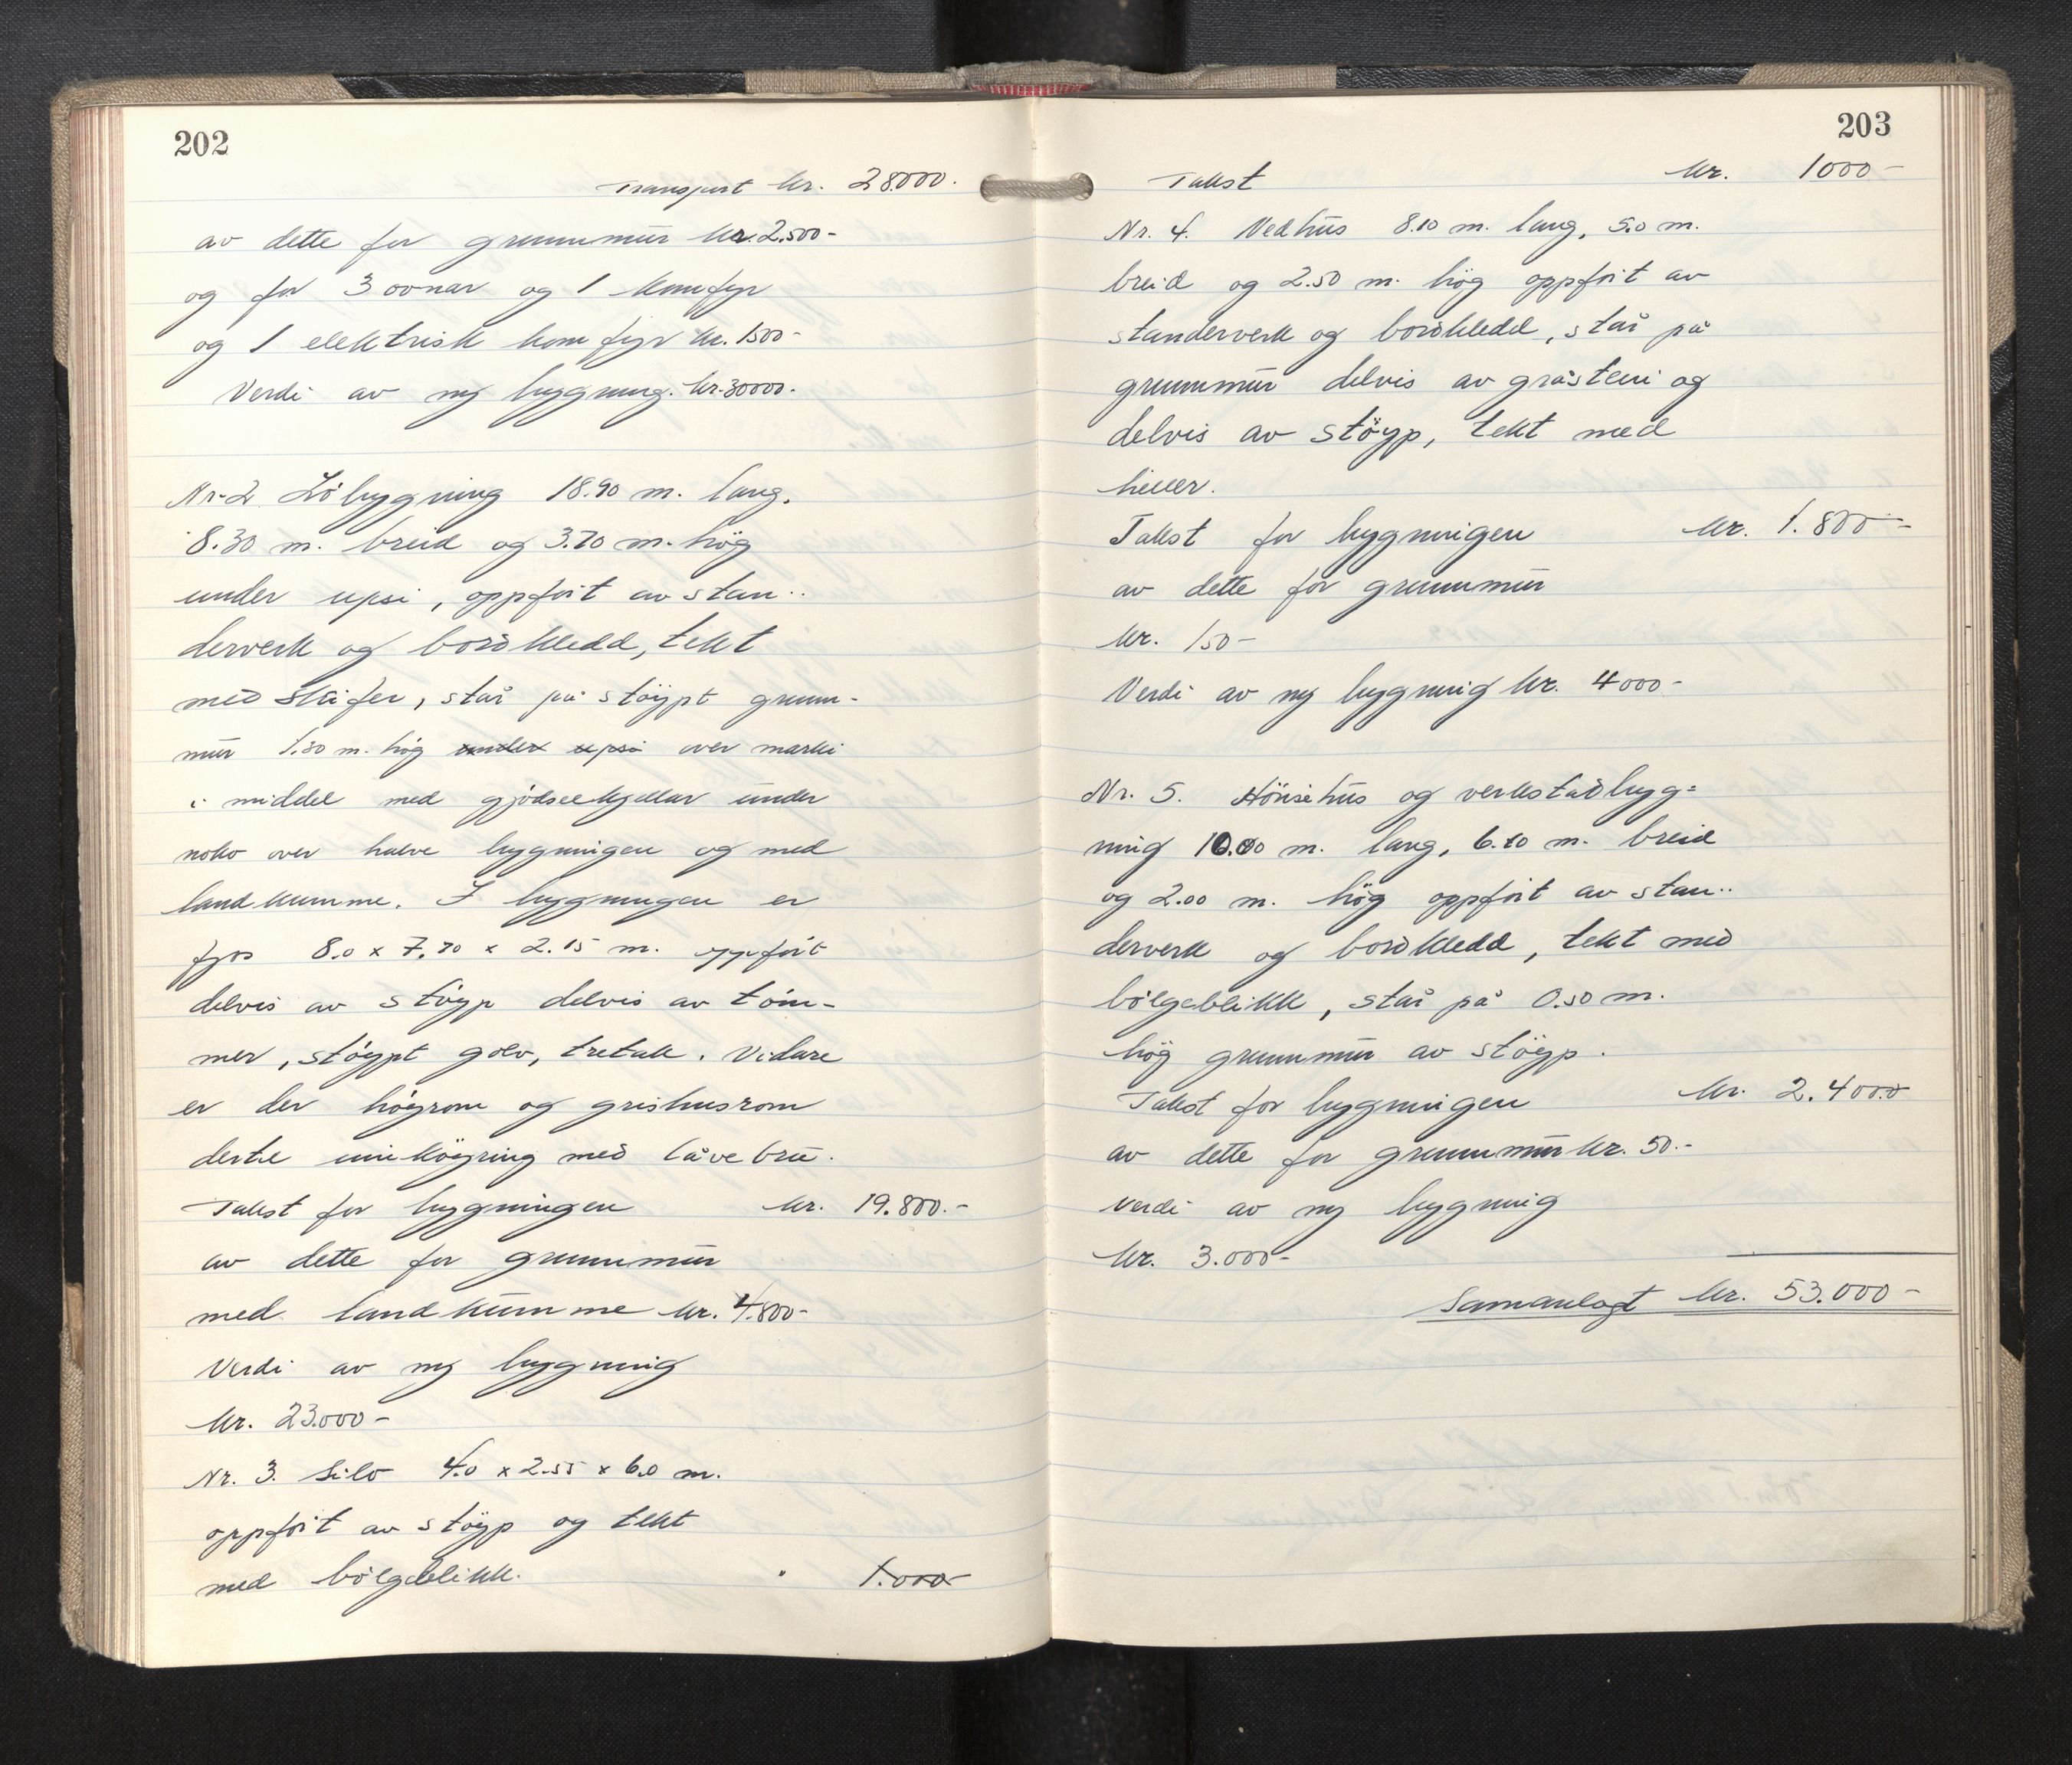 202
Transport kr. 28000.
av dette for grunnmur kr. 2.500-
og for 3 ovnar og 1 komfyr
og 1 elektrisk komfyr kr. 1500-
Verdi av ny bygning. kr. 30000.
Nr. 2 Löbygning 18.90 m. lang.
8.30 m. breid og 3.70 m. hög
under upsi, oppfört av stan-
derverk og bordkledd, tekt
med skifer, står på stöypt grunn-
mur 1.30 m. hög under upsi over marki
i middel med gjödselkjellar under
noko over halve bygningen og med
landkumme. I bygningen er
fjos 8.0 x 7.70 x 2.15 m. oppfört
delvis av stöyp delvis av töm-
mer, stöypt golv, tretak. Vidare
er der höyrom og grishusrom
dertil innköyring med låvebru.
Takst for bygningen kr. 19.800.-
av dette for grunnmur
med landkumme kr. 4.800-
Verdi av ny bygning
kr. 23.000-
Nr. 3. Silo 4.0 x 2.55 x 6.0 m.
oppfört av stöyp og tekt
med bölgeblikk. " 1.000-
203
Takst kr. 1000-
Nr. 4. Vedhus 8.10 m. lang, 5.0 m.
breid og 2.50 m. hög oppfört av
standerverk og bordkledd, står på
grunnmur delvis av gråstein og
delvis av stöyp, tekt med
heller.
Takst for bygningen kr. 1.800-
av dette for grunnmur
kr. 150-
Verdi av ny bygning kr. 4000-
Nr. 5. Hönsehus og verkstadbyg=
ning 10.00 m. lang, 6.20 m. breid
og 2.00 m. hög oppfört av stan-
derverk og bordkledd, tekt med
bölgeblikk, står på 0.50 m.
hög grunnmur av stöyp.
Takst for bygningen kr. 2.400.0
av dette for grunnmur kr. 50.-
verdi av ny bygning
kr. 3.000-
Samanlagt kr. 53.000-